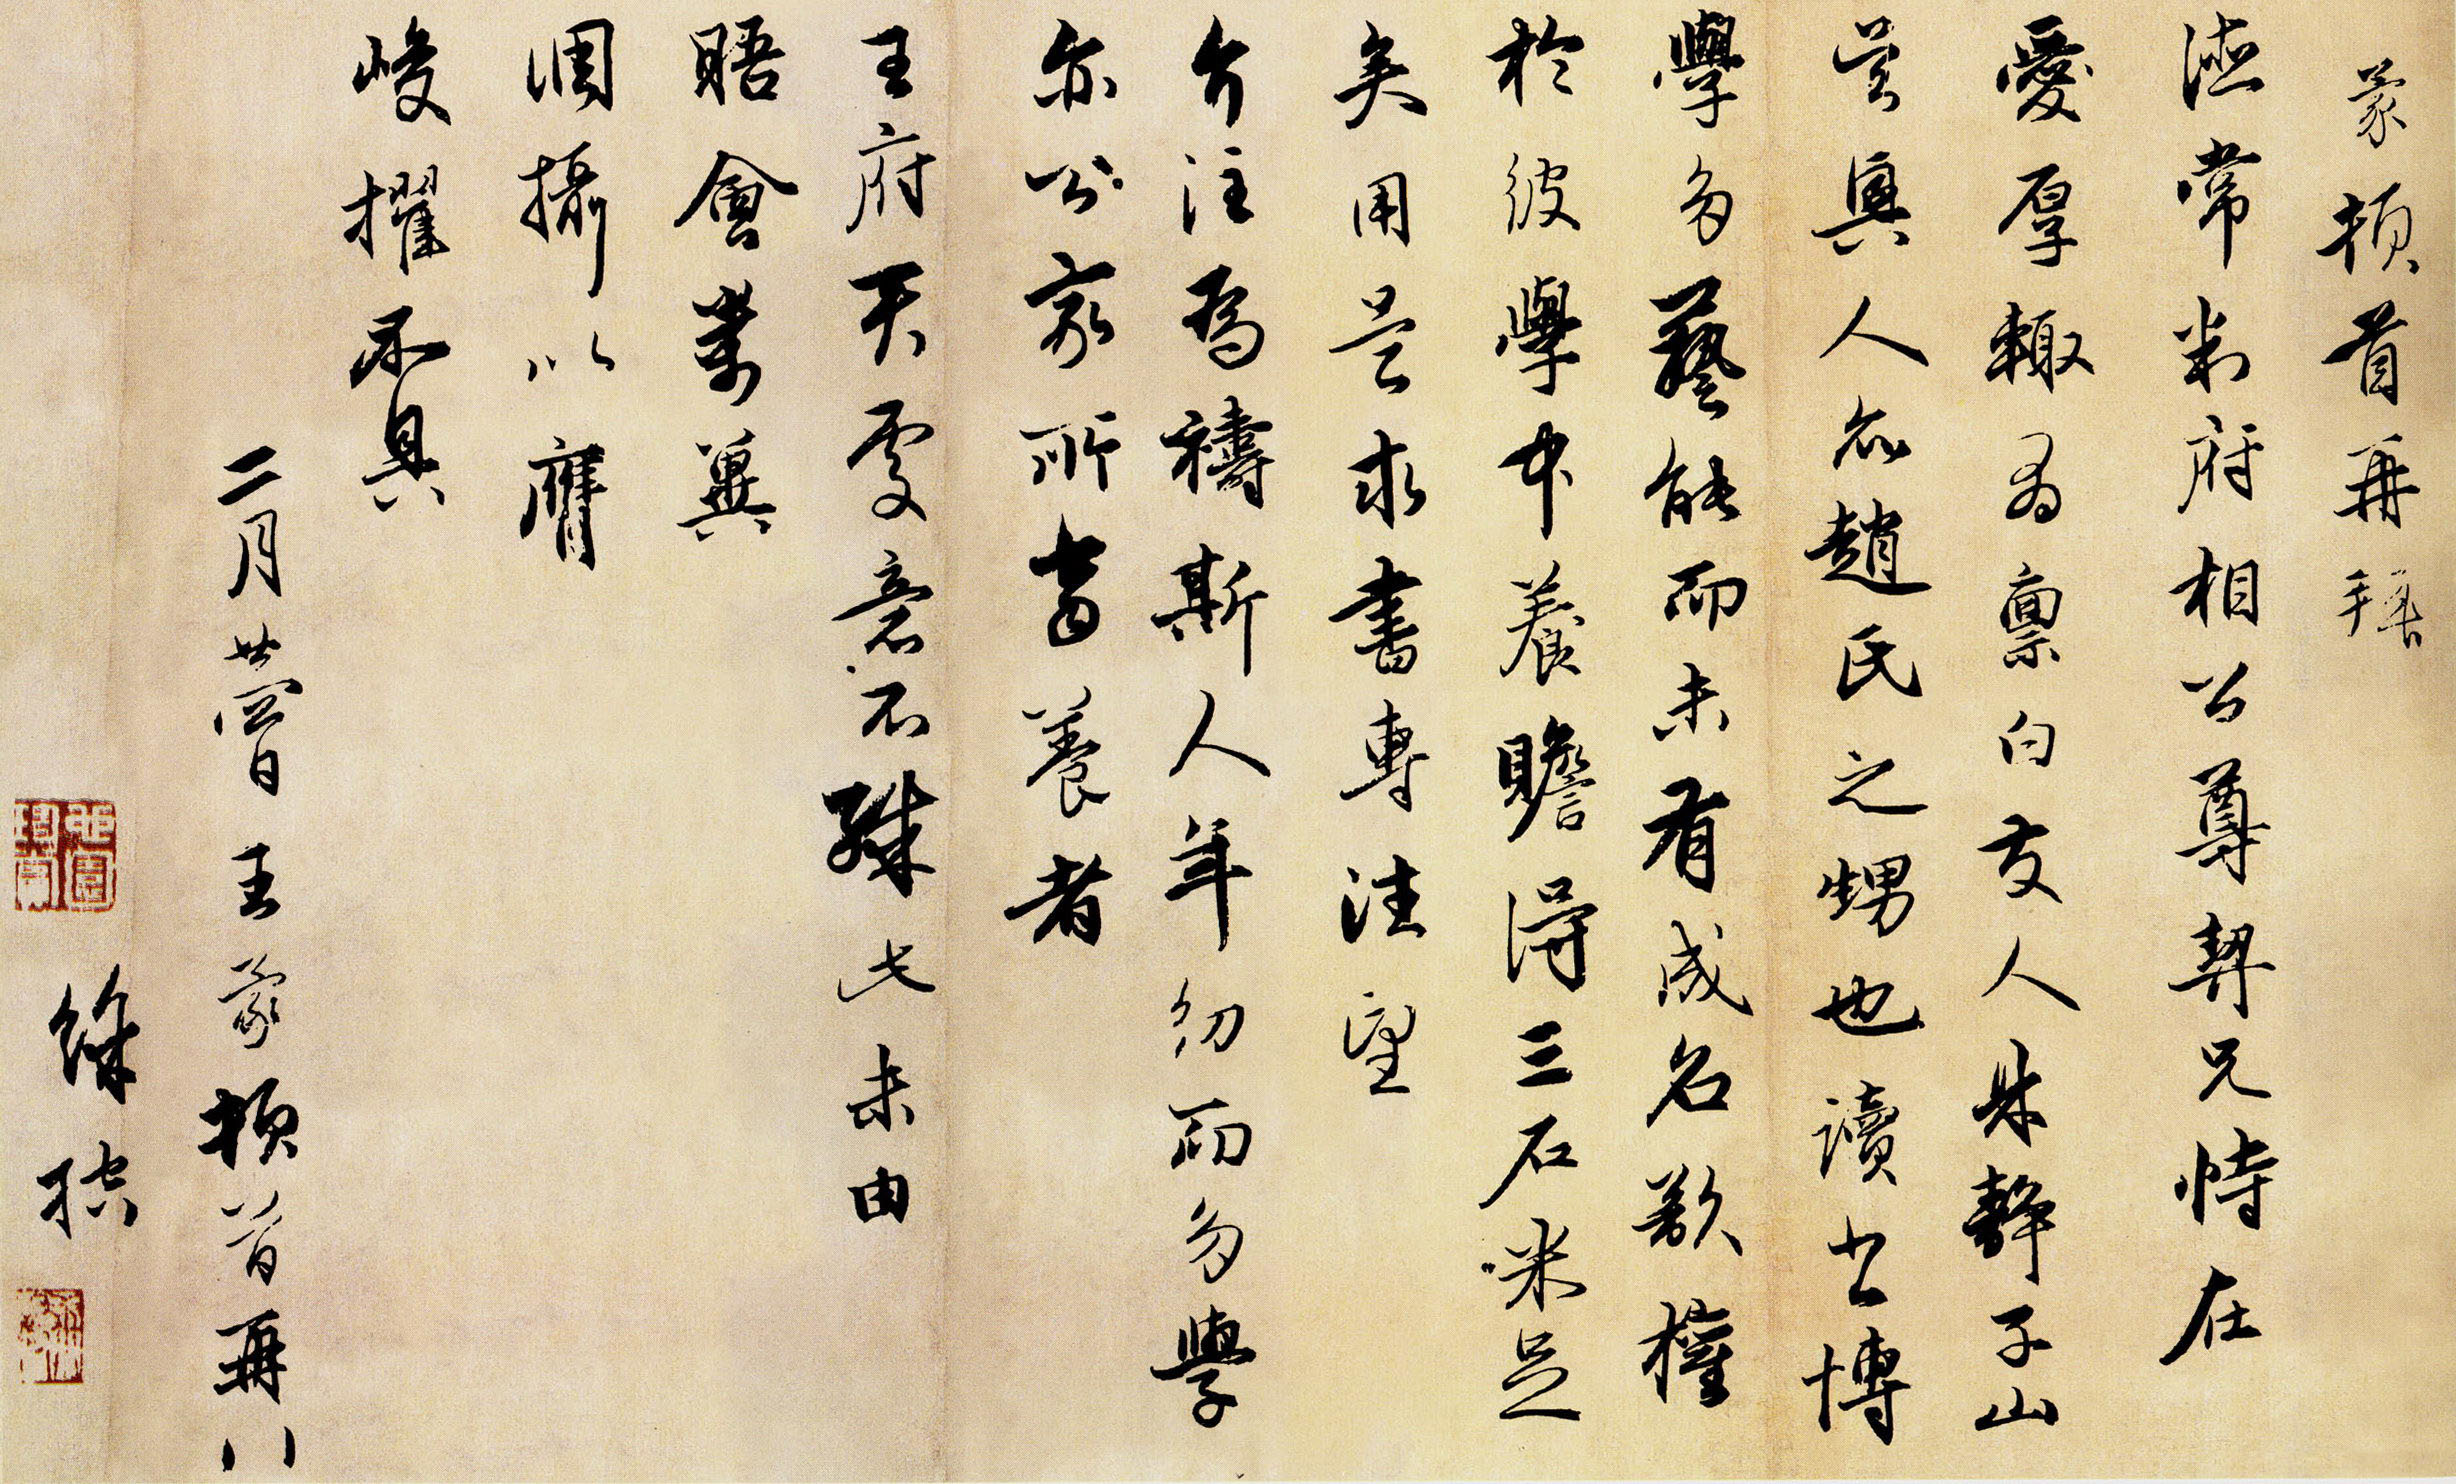 蒙頓首再拜
德常判府相公尊契兄恃在
愛厚輒為稟白友人具靜子山
吳興人亦趙氏之甥也讀書博
學多藝能而未有成名欲權
於彼學中養贍得三石米足
矣用是求書專注望
介注為禱斯人年幼而多學
亦公家所當養者
王府天處意不殊此未由
晤會萬冀
調攝以膺
峻擢不具
二月廿四日王蒙頓首再